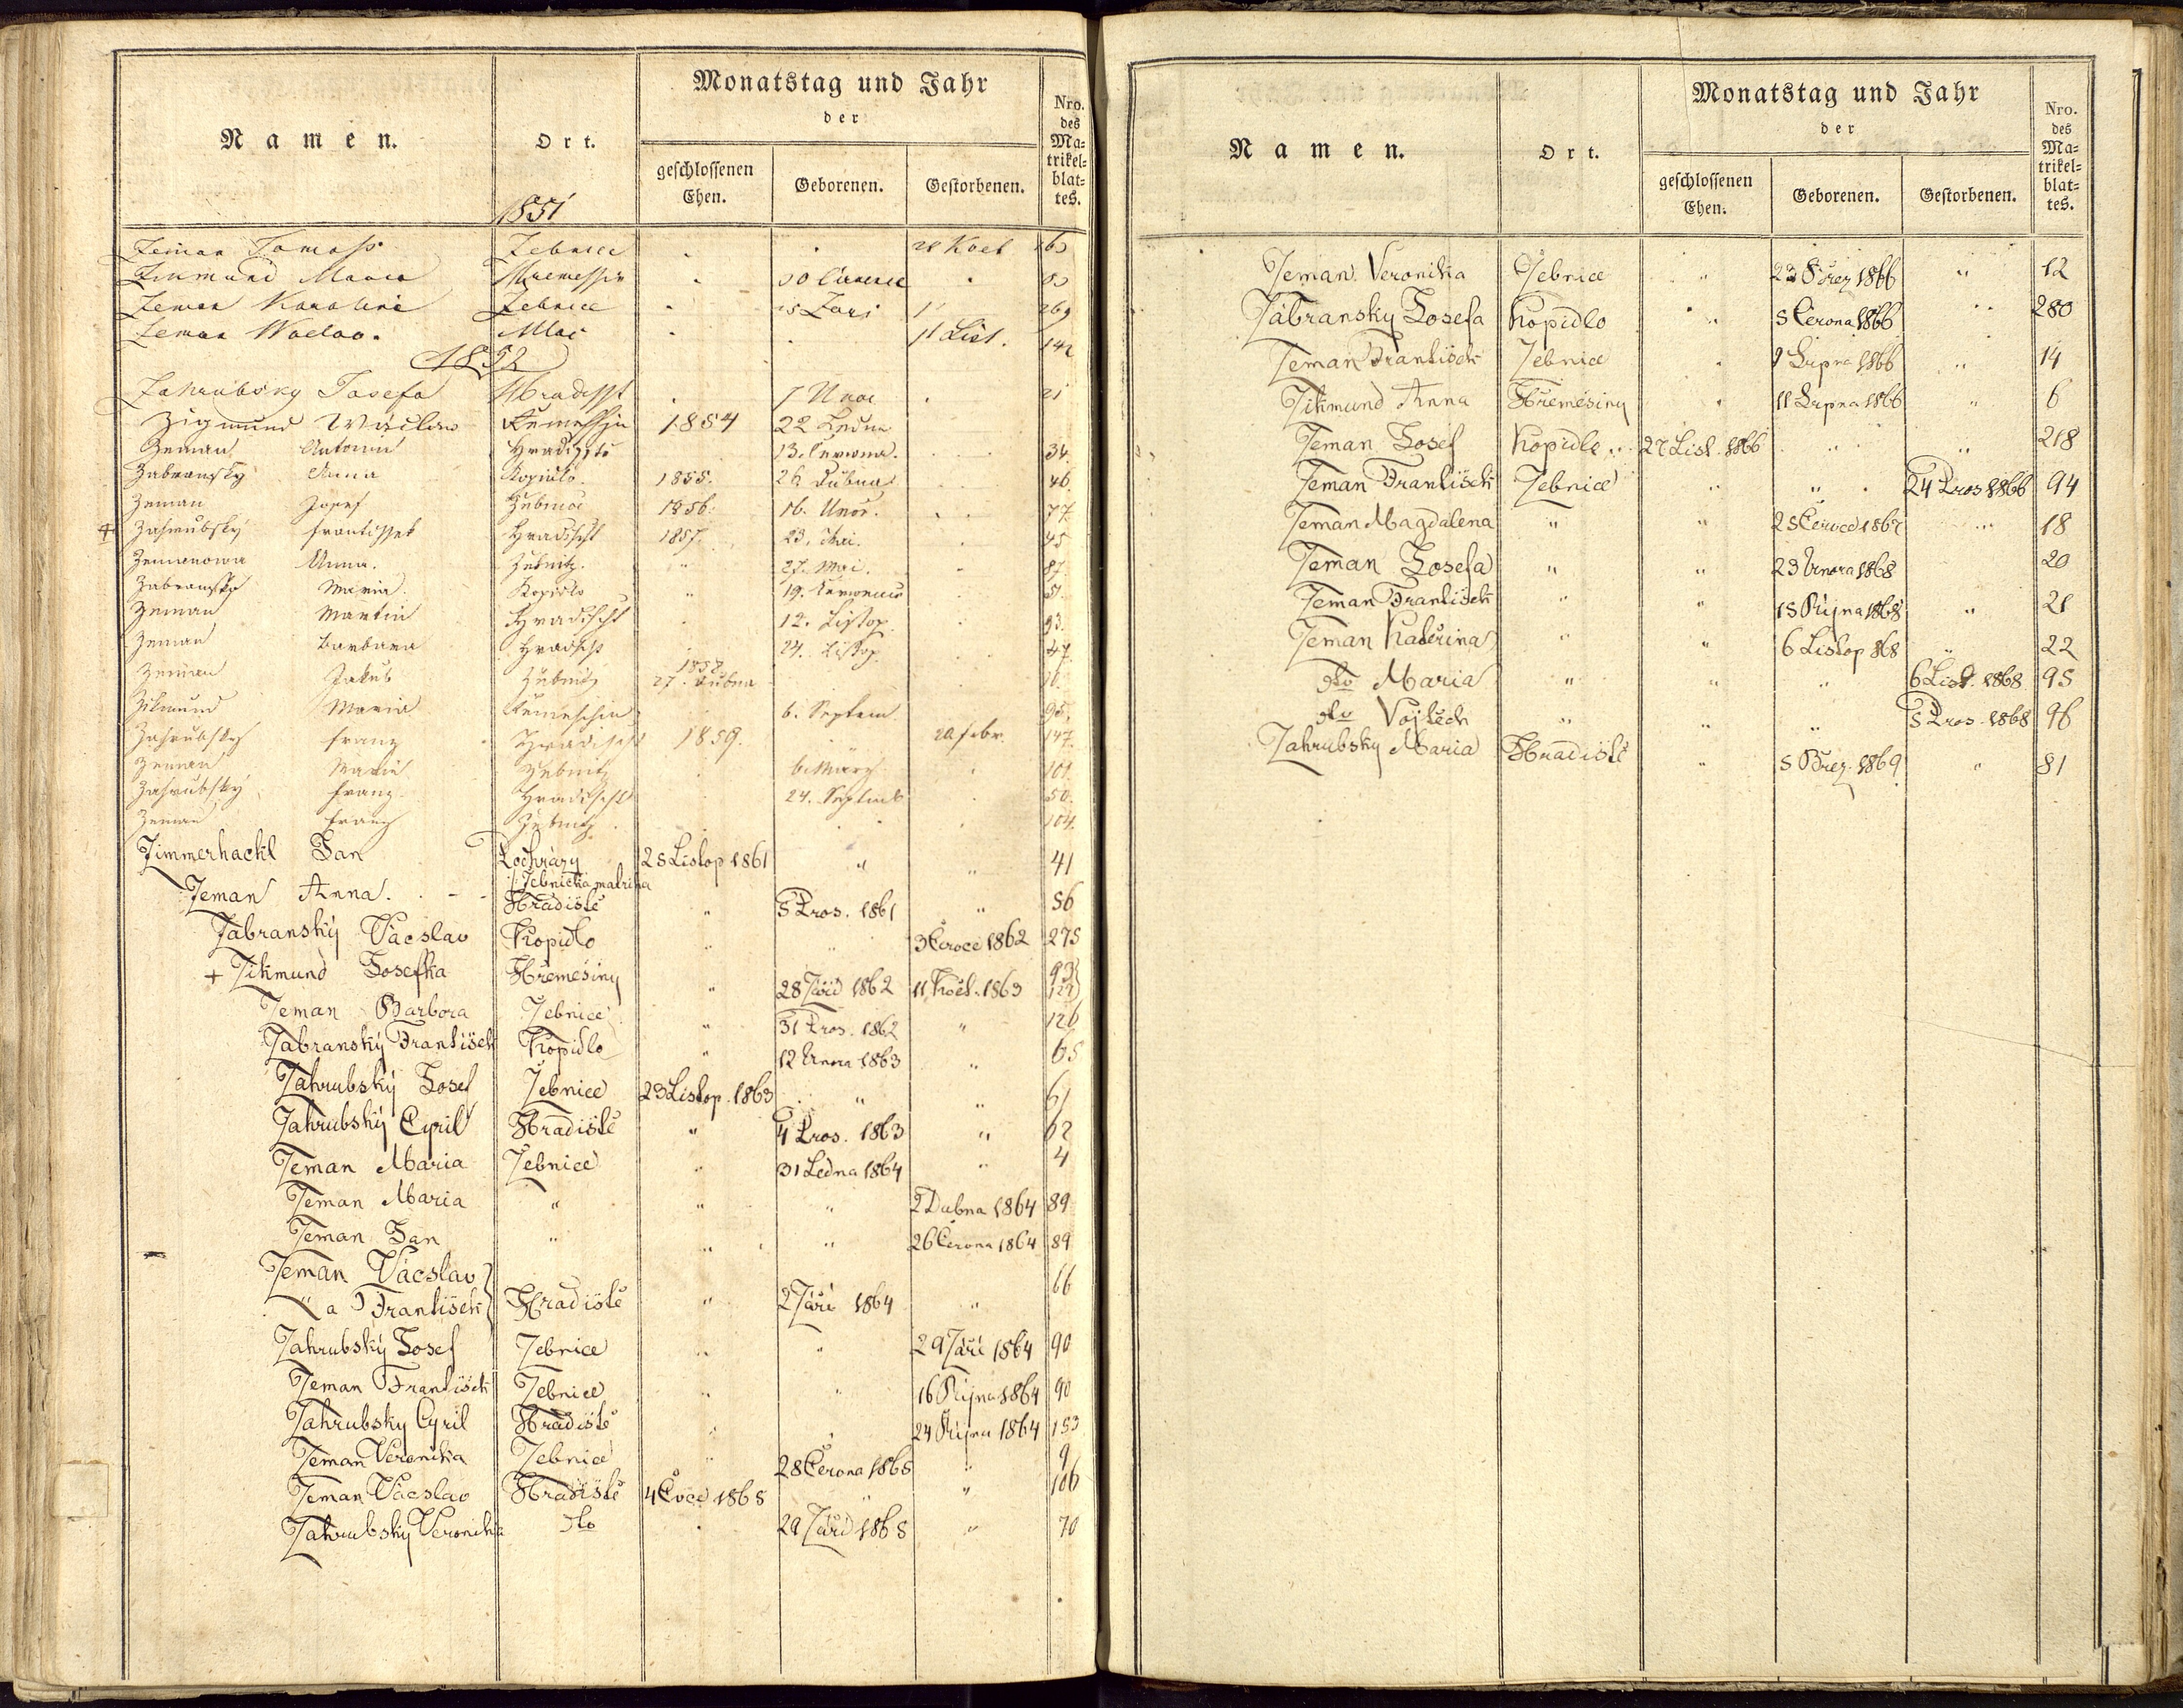 Namen.
Ort.
Monatstag und Jahr
der
geschlossenen Ehen.
Geborenen.
Gestorbenen.
Nro. des Ma-trikel-blat-tes.
1851
Zeman Tomass Zebnice 28 Kvet
Zikmund Maria
Zeman Karolina Zebnice 25 Zari 269
Zeman Waclav. 11 List. 142
1852
Zahrubsky Josefa Hradisst 7 Unor 21
Zigmund Wáclaw 1854 22 Ledna
Zeman Antonin Hradisste 13. Červena. 34.
Zabransky Anna Kopidlo. 1855. 26 Dubna 46.
Zeman Josef Žebnice 1856. 16. Unor. 77.
Zahrubsky Frantisset Hradischt 1857. 23. Mai. 45
Zemanowa Anna. Žebnitz. " 27. Mai. 87.
Zabransky Maria Kopidlo " 19. 51.
Zeman Martin Hradischt 12. Listop. 93.
Zeman Barbara Hradischt 24. Listop. 47.
Zeman Jakub Žebnitz 1858. 27. Dubna
Zikmund Maria 6. Septem. 95.
Zahrubsky Franz Hradischt 1859. 20 febr. 147.
Zeman Maria Žebnitz 6. März 101.
Zahrubsky Franz Hradischt 24. Septemb 50.
Zeman Franz Žebnitz. 104.
Zimmerhackl Jan Potvary 25 Listop 1861 " " 41
/: Žebnická matrika
Zeman Anna. Hradiště " 5 Pros. 1861 " 56
Zabranský Vácslav Kopidlo " " 3 Červce 1862 275
+ Zikmund Josefka Hřemešiny " 28 Září 1862 11 Květ. 1863 93 122
Zeman Barbora Žebnice " 31 Pros. 1862 " 126
Zabranský František Kopidlo " 12 Unora 1863 " 65
Zahrubský Josef Žebnice 23 Listop. 1863 " " 61
Zahrubský Cyril Hradiště " 4 Pros. 1863 " 62
Zeman Maria Žebnice " 31 Ledna 1864 " 4
Zeman Maria " " " 2 Dubna 1864 89
Zeman Jan " " " 26 Června 1864 89
Zeman Vácslav
" a František Hradiště " 2 Září 1864 " 66
Zahrubský Josef Žebnice " " 29 Září 1864 90
Zeman František Žebnice " " 16 Října 1864 90
Zahrubsky Cyril Hradiště " " 24 Října 1864 153
Zeman Veronika Žebnice " 28 Června 1865 " 9
Zeman Vácslav Hradiště 4 Čvce 1865 " " 106
Zahrubský Veronika dto " 29 Září 1865 " 70
Namen.
Ort.
Monatstag und Jahr
der
geschlossenen Ehen.
Geborenen.
Gestorbenen.
Nro. des Ma-trikel-blat-tes.
Zeman Veronika Žebnice " 23 Břez 1866 " 12
Zábranský Josefa Kopidlo " 5 Června 1866 " 280
Zeman František Žebnice " 9 Srpna 1866 " 14
Zikmund Anna Hřemešiny " 11 Srpna 1866 " 6
Zeman Josef Kopidlo 27 List. 1866 " " 218
Zeman František Žebnice " " 24 Pros 1866 94
Zeman Magdalena " " 25 Červce 1867 " 18
Zeman Josefa " " 23 Unora 1868 20
Zeman František " " 15 Října 1868 " 21
Zeman Kateřina " " 6 Listop 868 " 22
dto Maria " " " 6 List. 1868 95
dto Vojtěch " " " 5 Pros. 1868 96
Zahrubský Maria Hradiště " 5 Břez. 1869 " 81